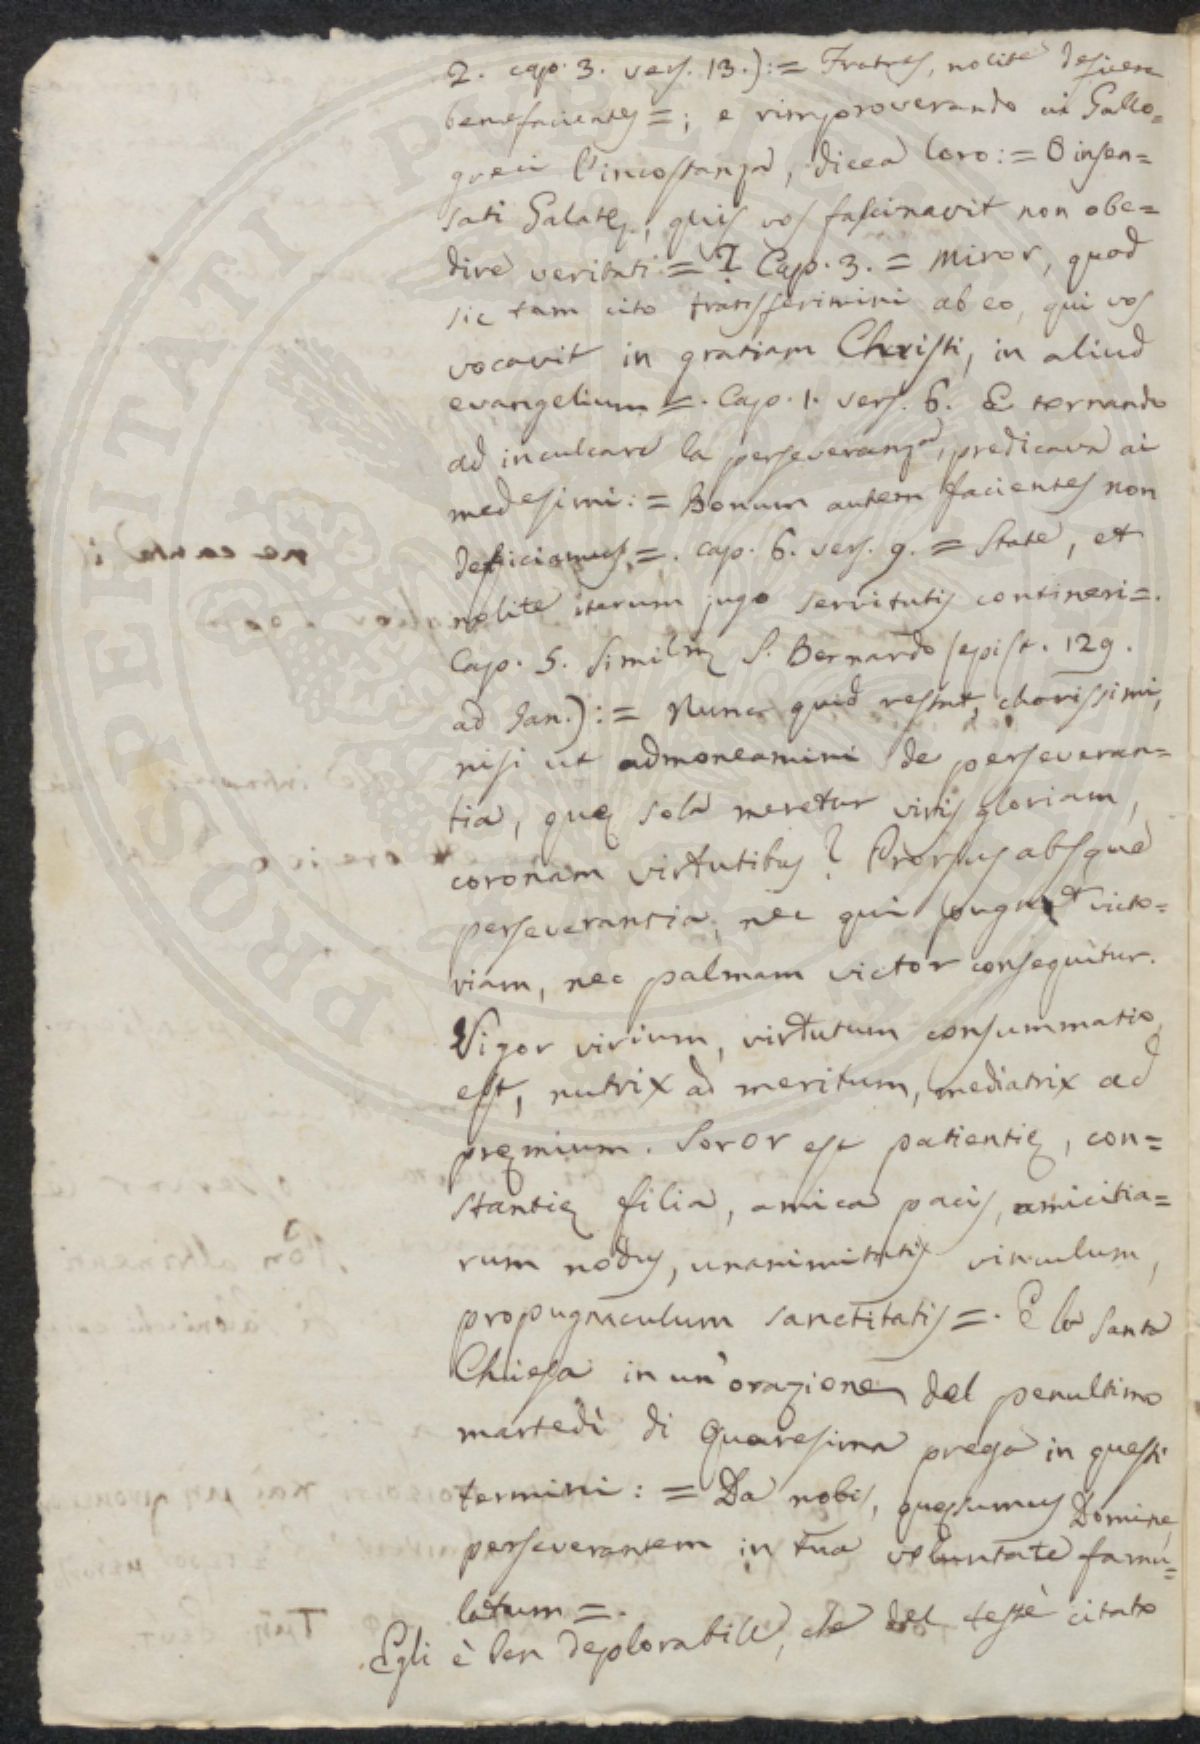 2. cap. 3. vers. 13.):= Fratres, nolite deficere
benefacientes =; e rimproverando ai Gallo=
greci l'incostanza, dicea loro:= O insen=
sati Galatę, quis vos fascinavit non obe=
dire veritati = Cap. 3. = Miror, quod
sic tam cito transferimini ab eo, qui vos
vocavit in gratiam Christi, in aliud
evangelium =. Cap. 1. vers. 6. E tornando
ad inculcare la perseveranza, predicava ai
medesimi:= Bonum autem facientes non
deficiamus =. cap. 6. vers. 9. = State, et
nolite iterum jugo servitutis contineri =.
Cap. 5. S. Bernardo (epist. 129.
ad Jan.):= Nunc quid restat, charissimi,
nisi ut admoneamini de perseveran=
tia, quę sola meretur viris gloriam,
coronam virtutibus? Prorsus absque
perseverantia, nec qui pugnat victo=
riam, nec palmam victor consequitur.
Vigor virium, virtutum consummatio
est, nutrix ad meritum, mediatrix ad
pręmium. Soror est patientię, con=
stantię filia, amica pacis, amicitia=
rum nodus, unanimitatis vinculum,
propugnaculum sanctitatis =. E la Santa
Chiesa in un'orazione del penultimo
martedì di Quaresima prega in questi
termini:= Da nobis, quęsumus Domine,
perseverantem in tua voluntate famu=
latum =.
Egli è ben deplorabile, che del testè citato
PROSPERITATI PUBLICAE